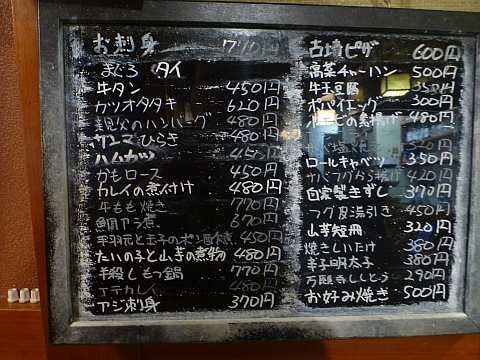 お刺身 710
まぐろ タイ
牛タン 450円
カツオタタキ 620円
親父のハンバーグ 480円
サンマひらき 480円
ハムカツ 450円
かもロース 450円
カレイの煮付け 480円
牛もも焼き 770円
鯛アラ煮 670円
玉子のポン酢 450円
たいの子と山芋の煮物 480円
手殺しもつ鍋 770円
エテカレイ 480円
アジ刺身 370円
古墳ピザ 600円
高菜チャーハン 500円
牛玉豆腐 350円
ポパイエッグ 300円
480円
320円
ロールキャベツ 350円
サバフグから揚げ 420
自家製きずし 370円
フグ皮湯引き 450円
山芋短冊 320円
焼きしいたけ 380円
辛子明太子 380円
万願寺ししとう 290円
お好み焼き 500円